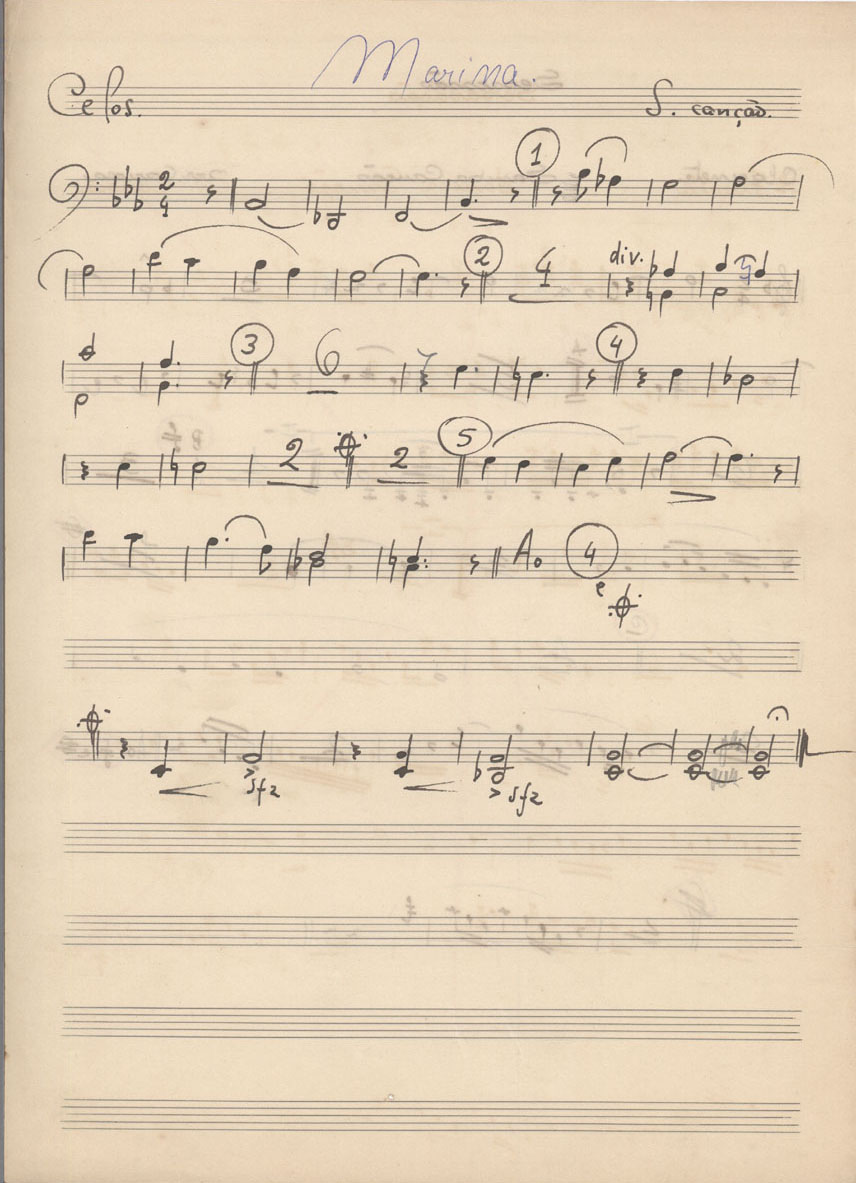 Marina.
Celos. S. canção.
1
2 4
2 4 div.
3 6 7 4
2 2 5
Ao 4
e
sfz sfz